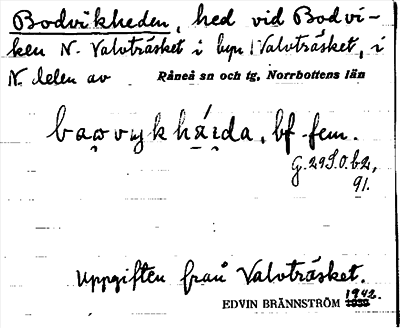 Bodvikheden, hed vid Bodvi-
ken N. Valvträsket i byn Valvträsket, i
N. delen av Råneå sn och tg, Norrbottens län
bf. fem.
G. 29 S.O. b2,
91.
Uppgiften från Valvträsket.
1942.
EDVIN BRÄNNSTRÖM